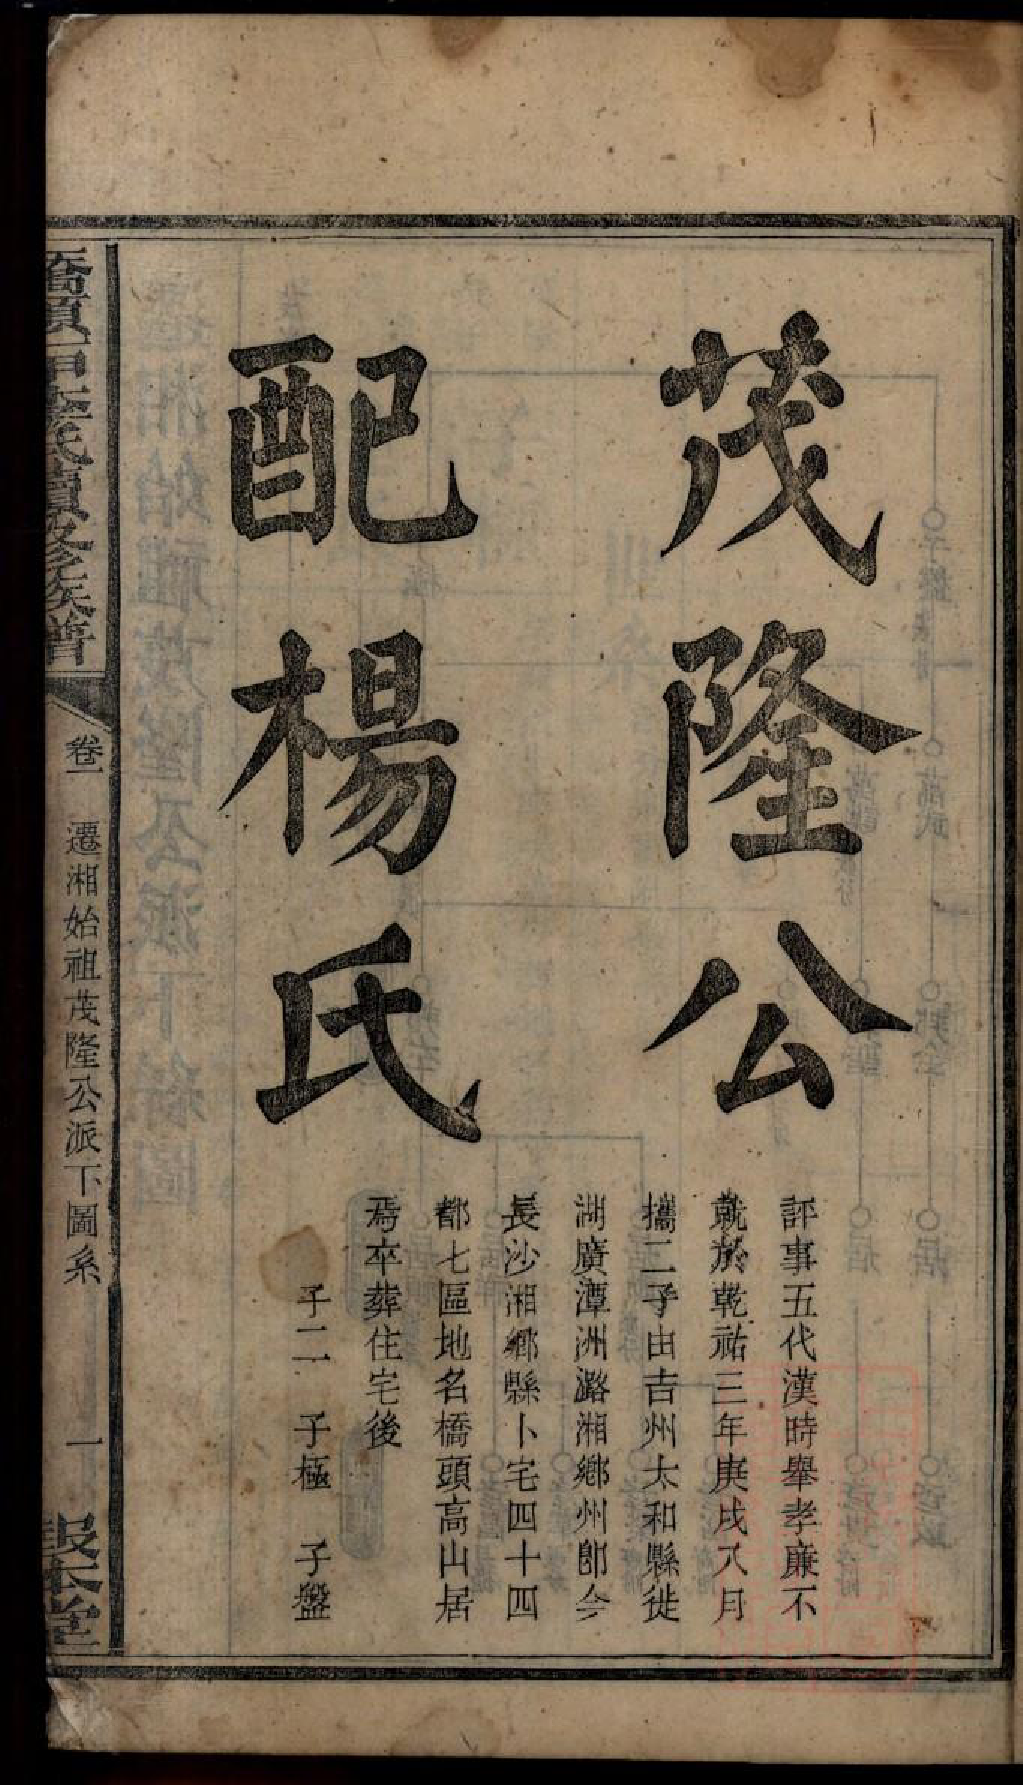 茂隆公
評事五代漢時舉孝廉不
就於乾祐三年庚戌八月
攜二子由吉州太和縣徙
湖廣潭洲潞湘鄉州卽今
長沙湘鄉縣卜宅四十四
都七區地名橋頭高山居
焉卒葬住宅後
子二 子極 子盤
配楊氏
氏續修族譜
卷一 遷湘始祖茂隆公派下圖系
一
堂